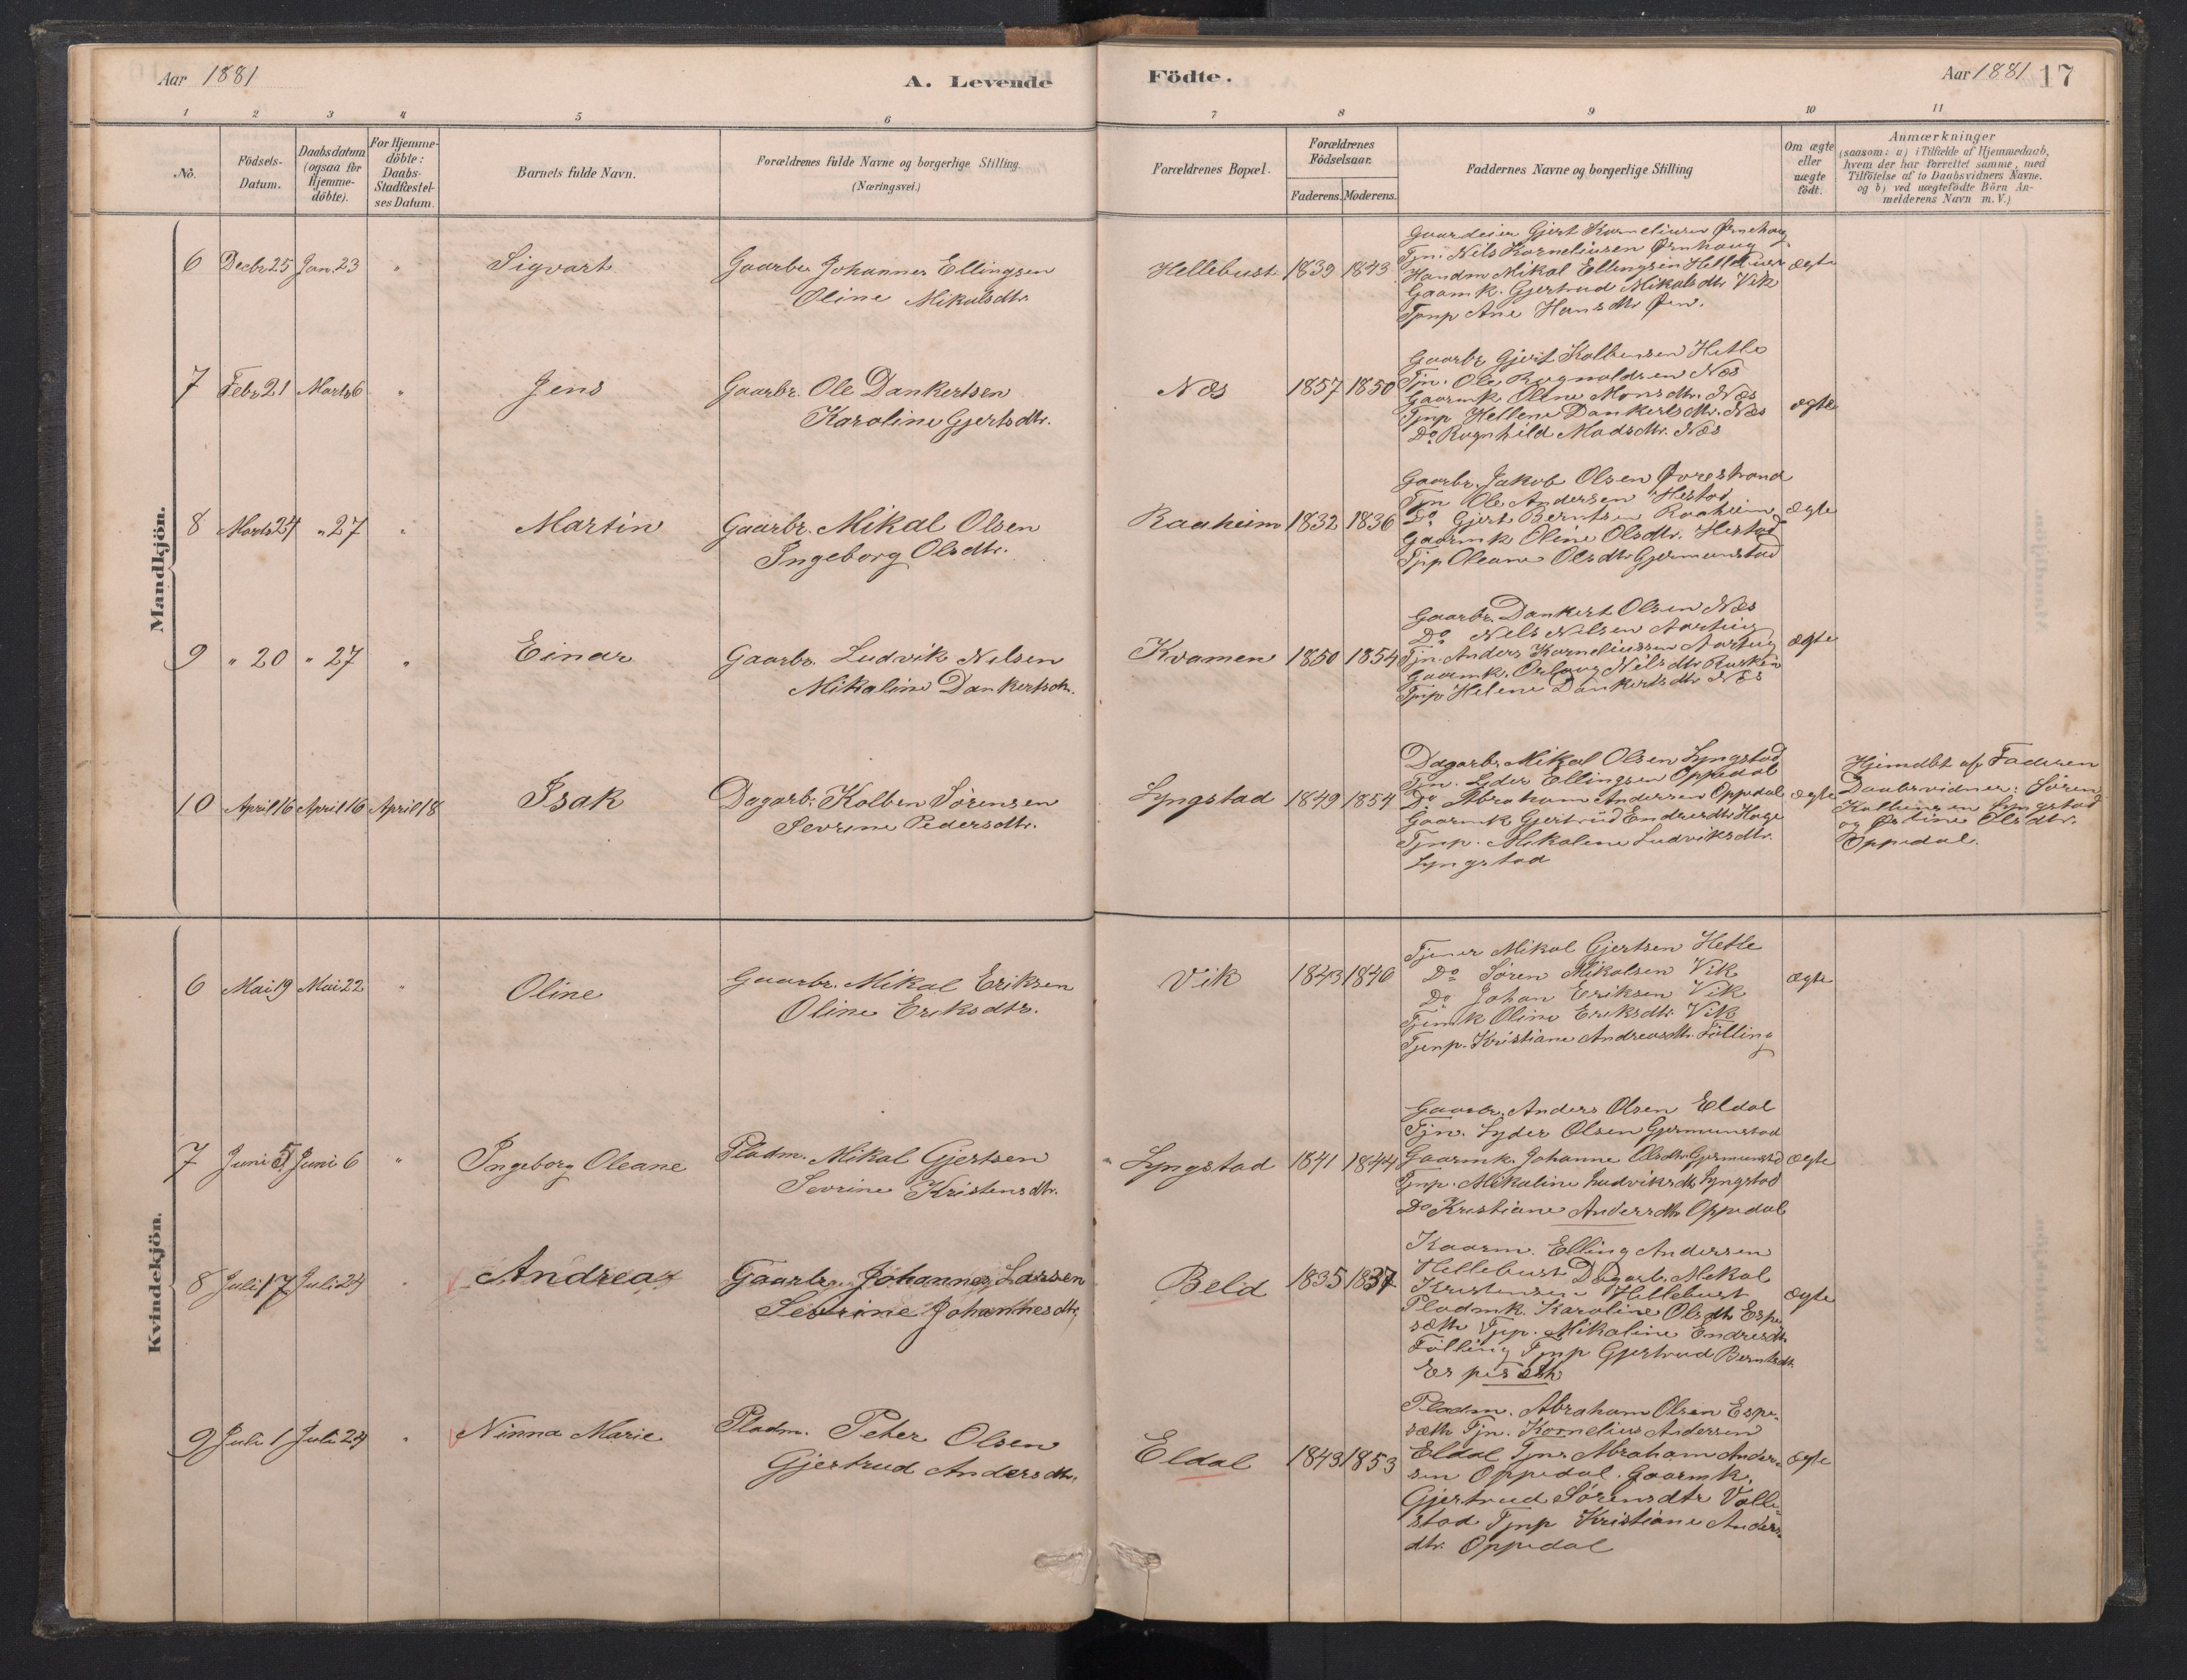 Aar 1881
A. Levende
Födte.
Aar 1881 17
1 2 3 4 5 6 7 8 9 10 11
No.
Födsels-Datum.
Daabsdatum (ogsaa for Hjemme-döbte).
For Hjemme-döbte: Daabs-Stadfæstel-ses Datum.
Barnets fulde Navn.
Forældrenes fulde Navne og borgerlige Stilling. (Næringsvei.)
Forældrenes Bopæl.
Forældrenes Födselsaar.
Faderens. Moderens.
Faddernes Navne og borgerlige Stilling
Om ægte eller uægte födt.
Anmærkninger
(saasom: a) i Tilfælde af Hjemmedaab,
hvem der har forrettet samme, med
Tilföielse af to Daabsvidners Navne.
og b) ved uægtefödte Börn An-
melderens Navn m.V.)
Mandkjön.
6 Decbr 25 Jan. 23 " Sigvart
Gaarbr. Johannes Ellingsen
Oline Mikalsdtr.
Hellebust 1839 1843
Gaardeier Gjert Korneliusen Ørnehaug
Tjn. Nils Korneliusen Ørnhaug
Handm Mikal Ellingsen Hellebust
Gaamk. Gjertrud Mikalsdtr Vik
Tjnp Ane Hansdtr Øen.
ægte
7 Febr 21 Marts 6 " Jens
Gaarbr. Ole Dankertsen
Karoline Gjertsdtr.
Næs 1857 1850
Gaarbr Gjert Kolbensen Hetle
Tjn. Ole Ragnvaldsen Næs
Gaarmk Oline Monsdtr. Næs
Tjnp Hellene Dankertsdtr. Næs
Do Ragnhild Madsdtr. Næs
ægte
8 Marts 24 " 27 " Martin
Gaarbr. Mikal Olsen
Ingeborg Olsdtr.
Raaheim 1832 1836
Gaarbr. Jakob Olsen Øvrestrand
Tjn Ole Andersen Hestad
Do Gjert Berntsen Raaheim
Gaarmk Oline Olsdtr. Hestad
Tjnp Oleane Olsdtr Gjermunstad
ægte
9 " 20 " 27 " Einar
Gaarbr. Ludvik Nilsen
Mikaline Dankertsdtr.
Kvamen 1850 1854
Gaarbr. Dankert Olsen Næs
Do Nils Nilsen Aartug
Tjn Anders Korneliussen Aartug
Gaarmk. Nilsdtr
Tjnp Helene Dankertsdtr Næs
ægte
10 April 16 April 16 April 18 Isak
Dagarb. Kolben Sørensen
Sevrine Pedersdtr.
Lyngstad 1849 1854
Dagarb. Mikal Olsen Lyngstad
Tjn. Lyder Ellingsen Oppedal
Do Abraham Andersen Oppedal
Gaarmk Gjertrud Endresdtr Hage
Tjnp. Mikaline Ludviksdtr.
Lyngstad
ægte
Hjemdbt af Faderen
Daabsvidner: Søren
Kolbensen Lyngstad
og Østine Olsdtr.
Oppedal.
Kvindekjön.
6 Mai 19 Mai 22 " Oline
Gaarbr. Mikal Eriksen
Oline Eriksdtr.
Vik 1843 1846
Tjener Mikal Gjertsen Hetle
Do Søren Mikalsen Vik
Do Johan Eriksen Vik
Tjemk Oline Eriksdtr. Vik
Tjenp. Kristiane Andreasdtr. Fölling
ægte
7 Juni 5 Juni 6 " Ingeborg Oleane
Pladm. Mikal Gjertsen
Sevrine Kristensdtr.
Lyngstad 1841 1844
Gaarbr. Anders Olsen Eldal
Tjn. Lyder Olsen Gjermunstad
Gaarmk. Johanne Olsdtr Gjermunstd
Tjnp. Mikaline Ludviksdtr Lyngstad
Do Kristiane Andersdtr Oppedal
ægte
8 Juli 17 Juli 24 " Andrea
Gaarbr. Johannes Larsen
Sevrine Johannesdtr.
Beld 1835 1837
Kaarm. Elling Andersen
Hellebust Dagarb. Mikal
Kristensen Hellebust
Pladmk. Karoline Olsdtr Espe-
sæth Tjnp. Mikaline Endresdtr
Fölling Tjnp Gjertrud Berntsdtr.
Espesæth
ægte
9 Juli 1 Juli 24 " Ninna Marie
Pladm. Peter Olsen
Gjertrud Andersdtr.
Eldal 1843 1853
Pladm. Abraham Olsen Espe-
sæth Tjn. Kornelius Andersen
Eldal Tjnr Abraham Ander-
sen Oppedal. Gaarmk.
Gjertrud Sörensdtr Valle-
stad Tjnp Kristiane Anders-
dtr. Oppedal
ægte